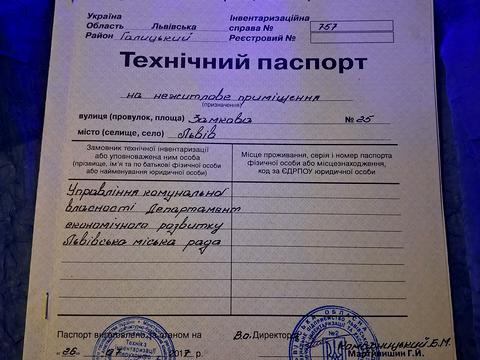 Україна
Область Львівська
Район Галицький
Інвентаризаційна
справа № 757
Реєстровий №
Технічний паспорт
на нежитлове приміщення
(призначення)
вулиця (провулок, площа) Замкова № 25
місто (селище, село) Львів
Замовник технічної інвентаризації
або уповноважена ним особа
(прізвище, ім'я та по батькові фізичної особи
або найменування юридичної особи)
Місце проживання, серія і номер паспорта
фізичної особи або місцезнаходження,
код за ЄДРПОУ юридичної особи
Управління комунальної
власності Департамент
економічного розвитку
Львівська міська рада
Паспорт виготовлено за станом на
2017 р.
В.о. Директор
Комарницький Б.М.
Мартинишин Г.Й.